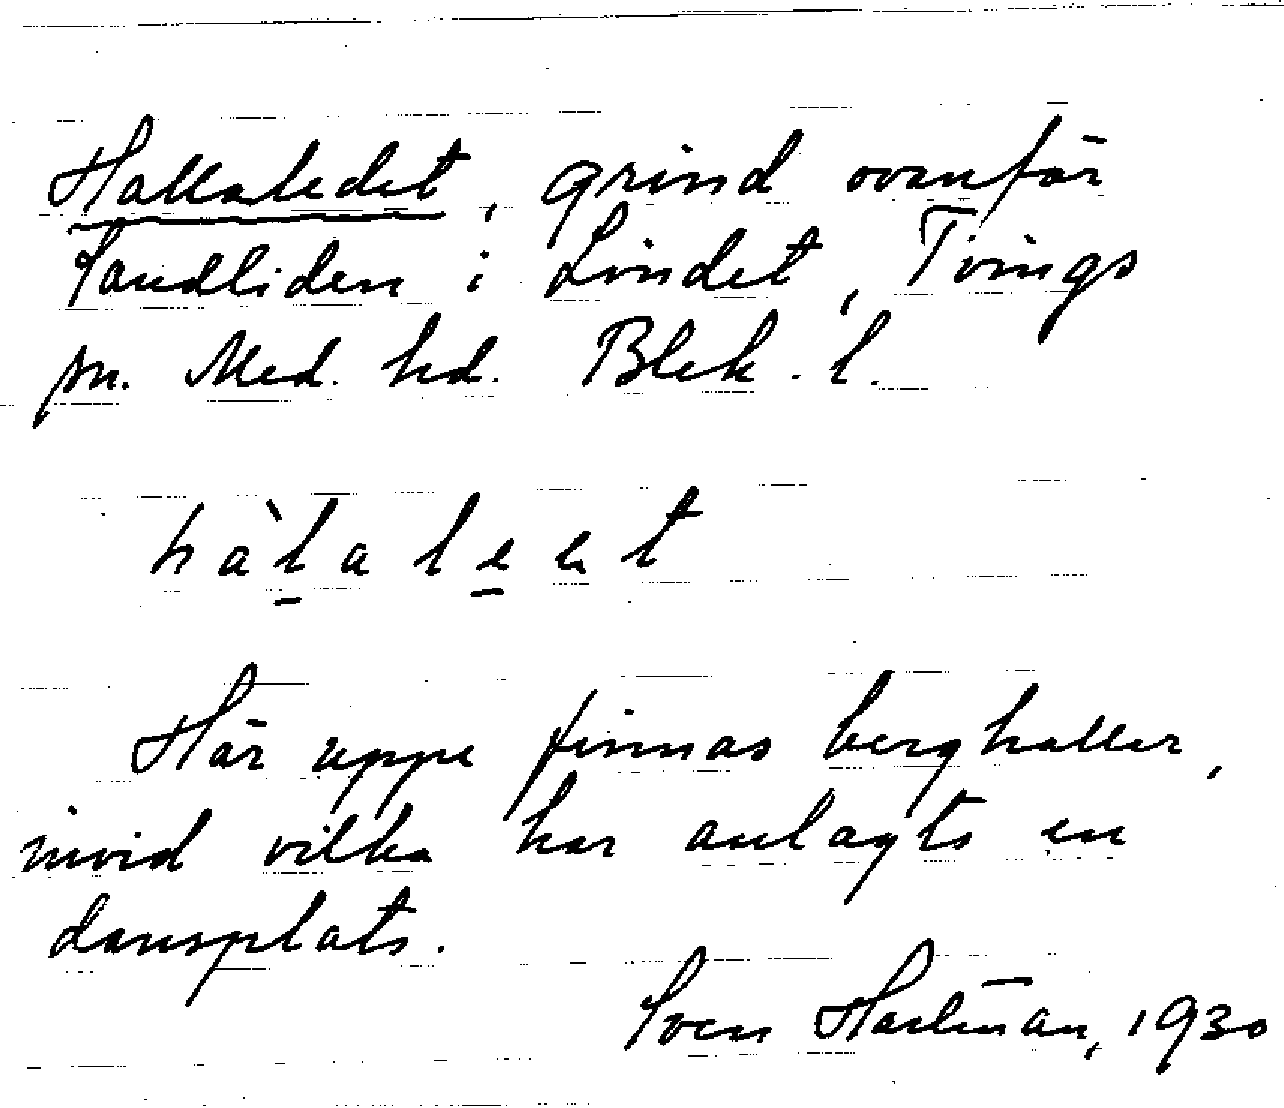 Hallaledet, grind ovanför
Sandliden i Lindet, Tvings
sn. Med. hd. Blek. l.
hàlaleet
Här uppe finnas berghallar,
invid vilka har anlagts en
dansplats.
Sven Hartman, 1930